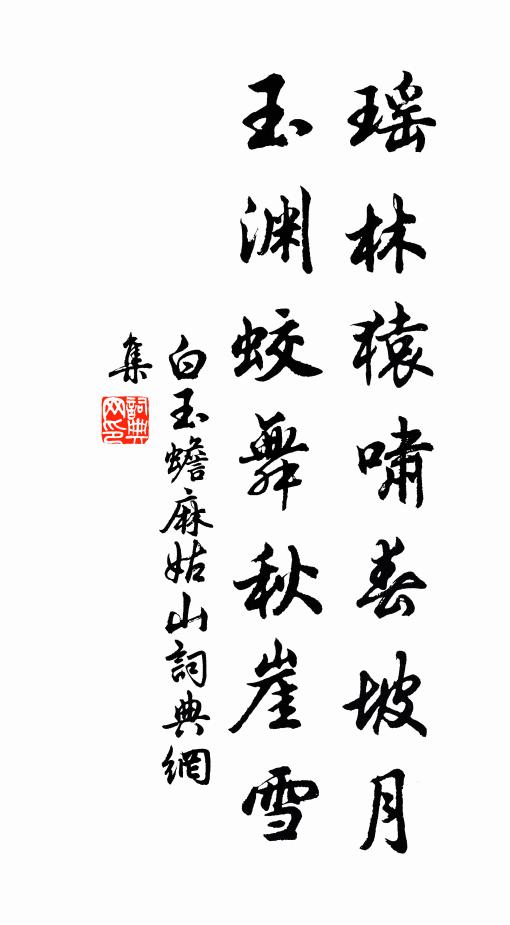 瑶林猿嘯春坡月
玉淵蛟舞秋崖雪
白玉蟾麻姑山詞典網
集
詞典
网印